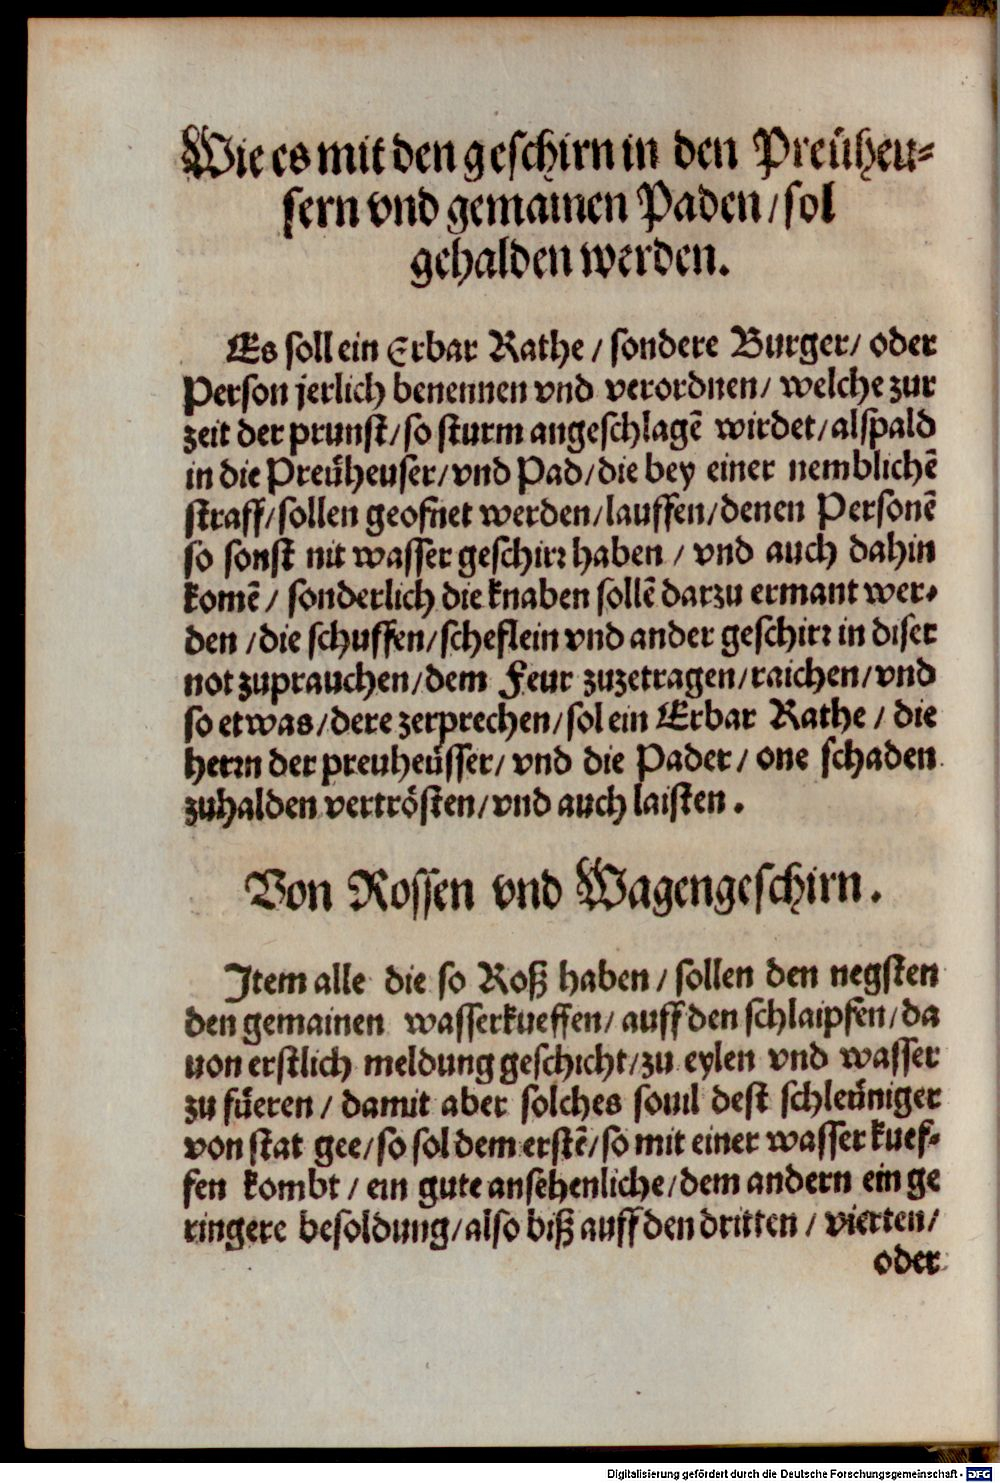 Wie es mit den geschirn in den Preüheu-
sern vnd gemainen Paden / sol
gehalden werden.
Es soll ein Erbar Rathe / sondere Burger / oder
Person jerlich benennen vnd verordnen / welche zur
zeit der prunst / so sturm angeschlagē wirdet / alspald
in die Preüheuser / vnd Pad / die bey einer nemblichē
straff / sollen geofnet werden / lauffen / denen Personē
so sonst nit wasser geschirꝛ haben / vnd auch dahin
komē / sonderlich die knaben sollē darzu ermant wer-
den / die schuffen / scheflein vnd ander geschirꝛ in diser
not zuprauchen / dem Feur zuzetragen / raichen / vnd
so etwas / dere zerprechen / sol ein Erbar Rathe / die
herꝛn der preuheüsser / vnd die Pader / one schaden
zuhalden vertrösten / vnd auch laisten.
Von Rossen vnd Wagengeschirn.
Item alle die so Roß haben / sollen den negsten
den gemainen wasserkueffen / auff den schlaipfen / da
uon erstlich meldung geschicht / zu eylen vnd wasser
zu füeren / damit aber solches souil dest schleüniger
von stat gee / so sol dem erstē / so mit einer wasser kuef-
fen kombt / ein gute ansehenliche / dem andern ein ge
ringere besoldung / also biß auff den dritten / vierten /
oder
Digitalisierung gefördert durch die Deutsche Forschungsgemeinschaft - DFG